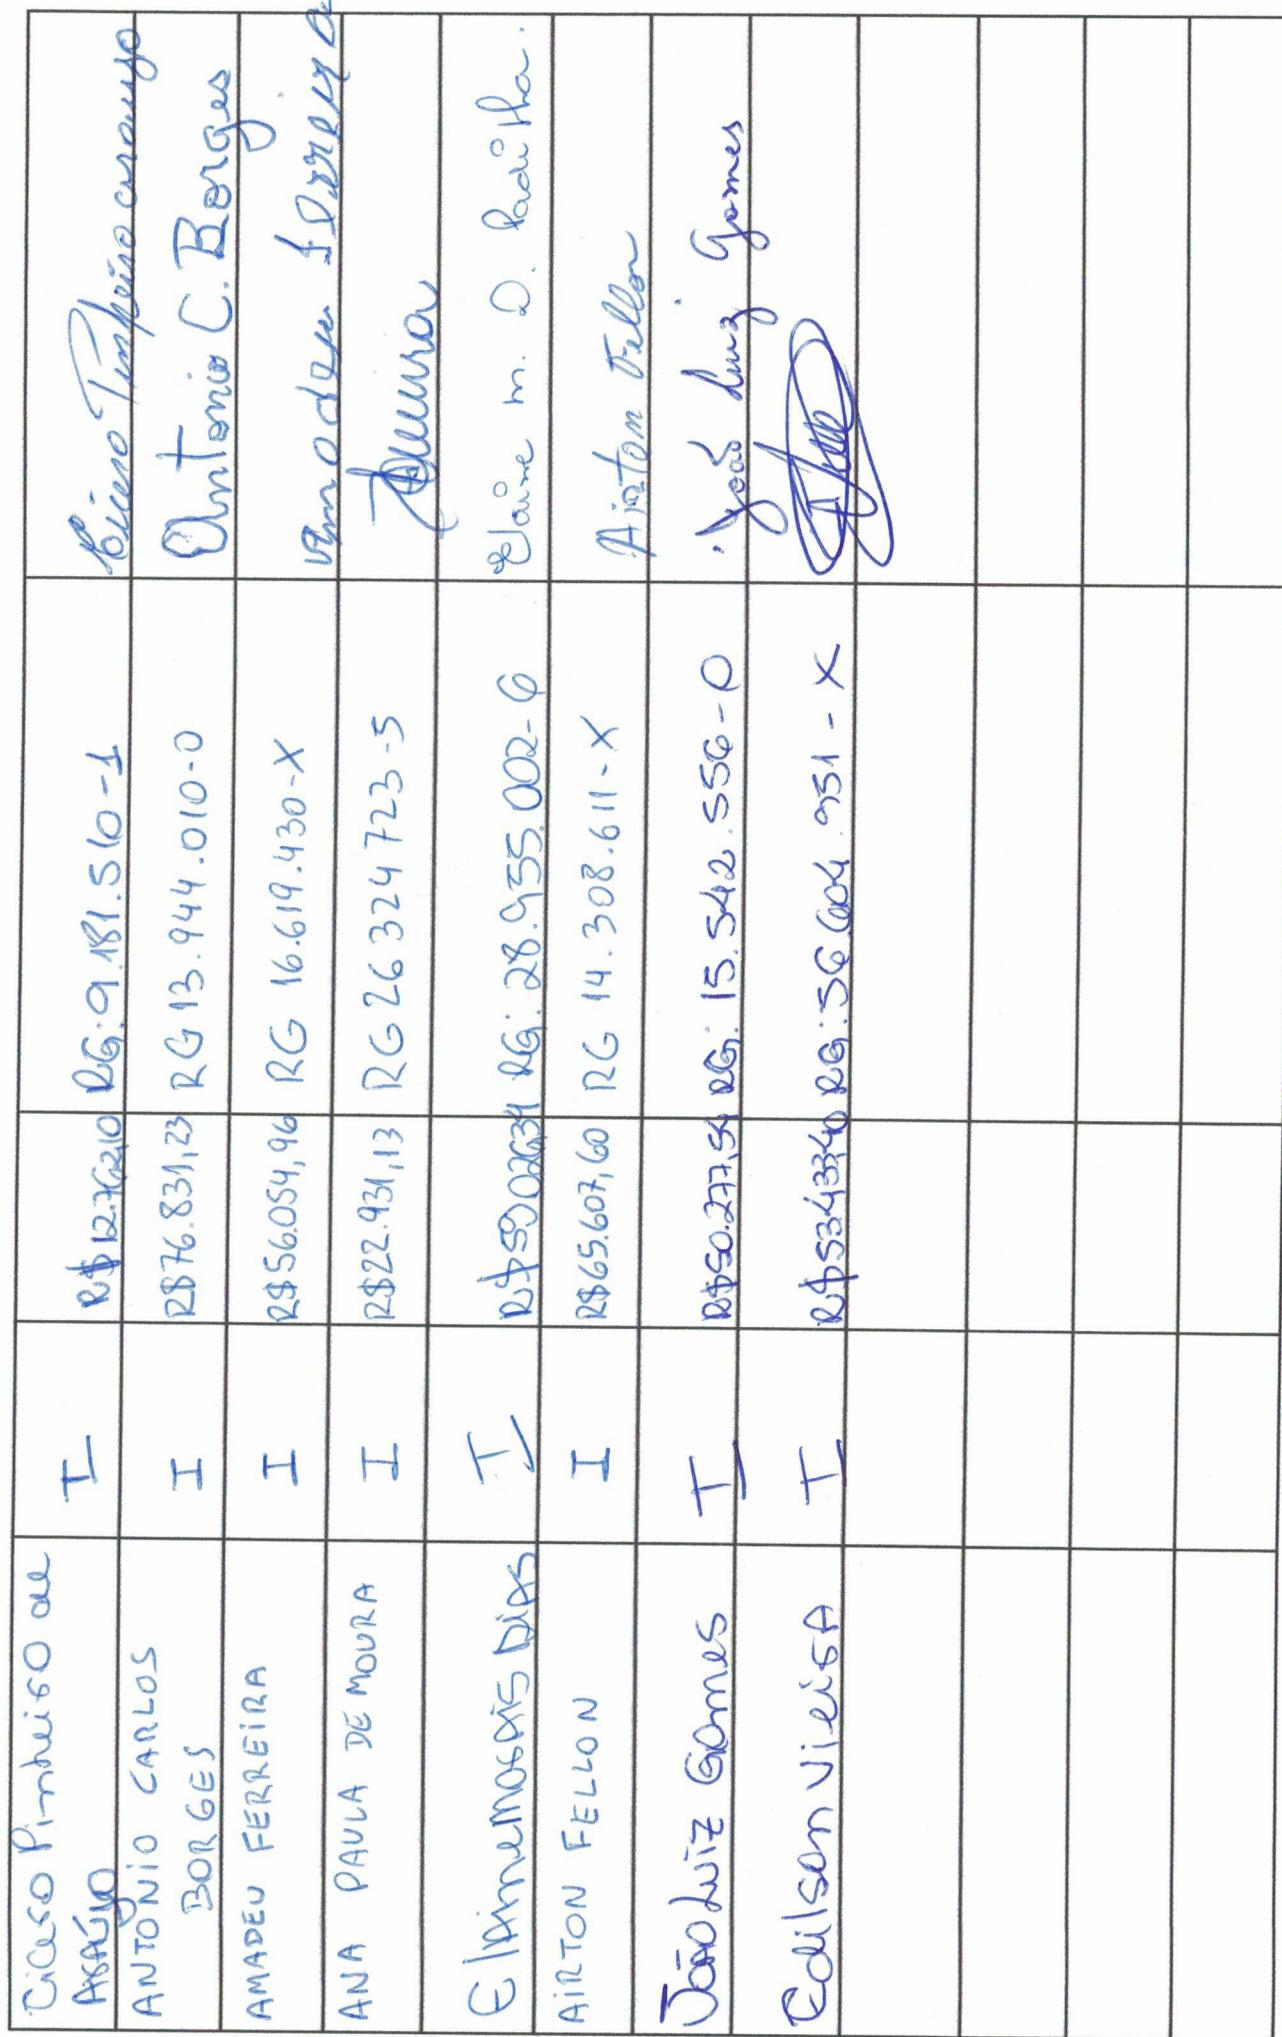 Cicero Pinheiro de
Araújo
I
R$12.762,10
RG: 9.181.510-1
Cicero Pinheiro araujo
ANTÔNIO CARLOS
BORGES
I
R$76.831,23
RG 13.944.010-0
Antonio C. Borges
AMADEU FERREIRA
I
R$56.054,96
RG 16.619.430-X
Amadeu Ferreira
ANA PAULA DE MOURA
I
R$22.931,13
RG 26 324 723-5
Elaine Morais Dias
I
RG: 28.955.002-6
Elaine m. D. Padilha.
AIRTON FELLON
I
R$65.607,60
RG 14.308.611-X
Airton Fellon
João Luiz Gomes
I
R$50.277,54
RG: 15.542.556-0
João Luiz Gomes
Edilson Vieira
I
R$53.433,40
RG: 56 604.951-X